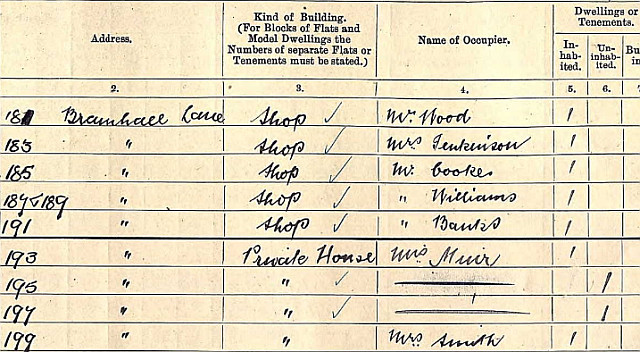 Address. Kind of Building. (For Blocks of Flats and Model Dwellings the Numbers of separate Flats or Tenements must be stated.) Name of Occupier. Dwellings or Tenements. In-hab-ited. Un-inhab-ited. Bu in
2. 3. 4. 5. 6. 7
181 Bramhall Lane Shop ✓ Mr. Wood 1
183 " Shop ✓ Mrs Jenkinson 1
185 " Shop ✓ Mr. Cookes 1
187 & 189 " Shop ✓ " Williams 1
191 " Shop ✓ " Banks 1
193 " Private House Mrs Muir 1
195 " " ✓ 1
197 " " ✓ 1
199 " " Mrs Smith 1